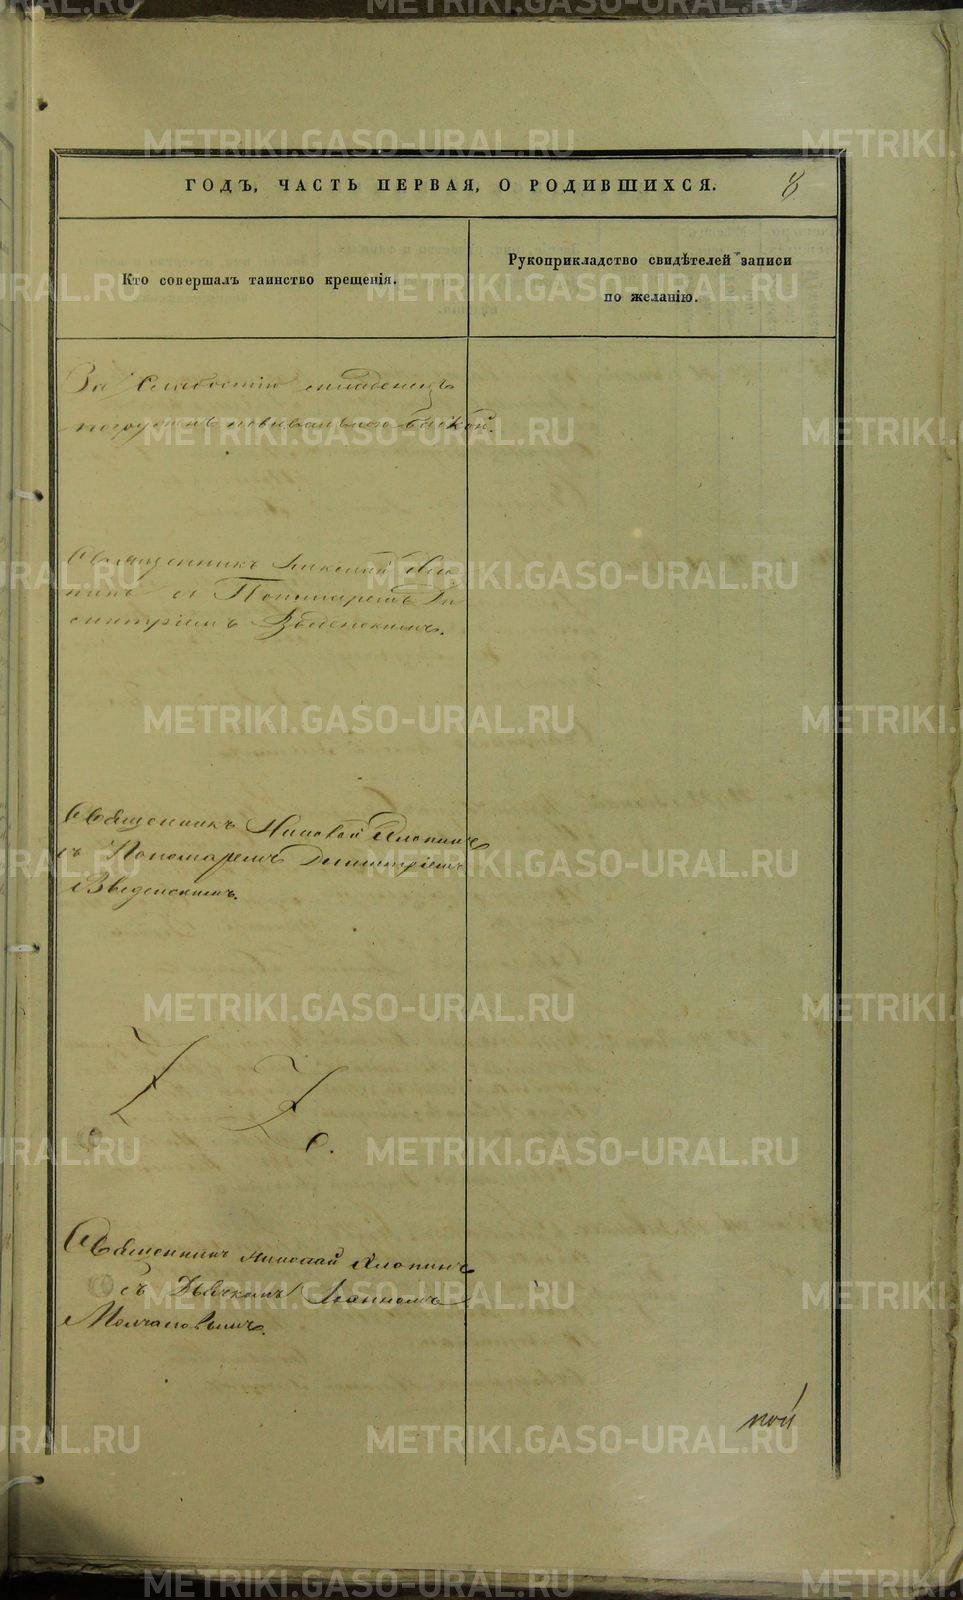 METRIKI.GASO-URAL.RU
ГОДЪ, ЧАСТЬ ПЕРВАЯ, О РОДИВШИХСЯ. 8
Кто совершалъ таинство крещенія.
Рукоприкладство свидѣтелей записи
по желанію.
За слабостію младенецъ
погруженъ повивальною бабкой.
Священникъ Николай Хло
пинъ съ Пономаремъ Ди
митріемъ Введенскимъ.
Священникъ Николай Хлопинъ
съ Пономаремъ Димитріемъ
Введенскимъ.
Священникъ Николай Хлопинъ
съ Дьячкомъ Іоанномъ
Молчановымъ.